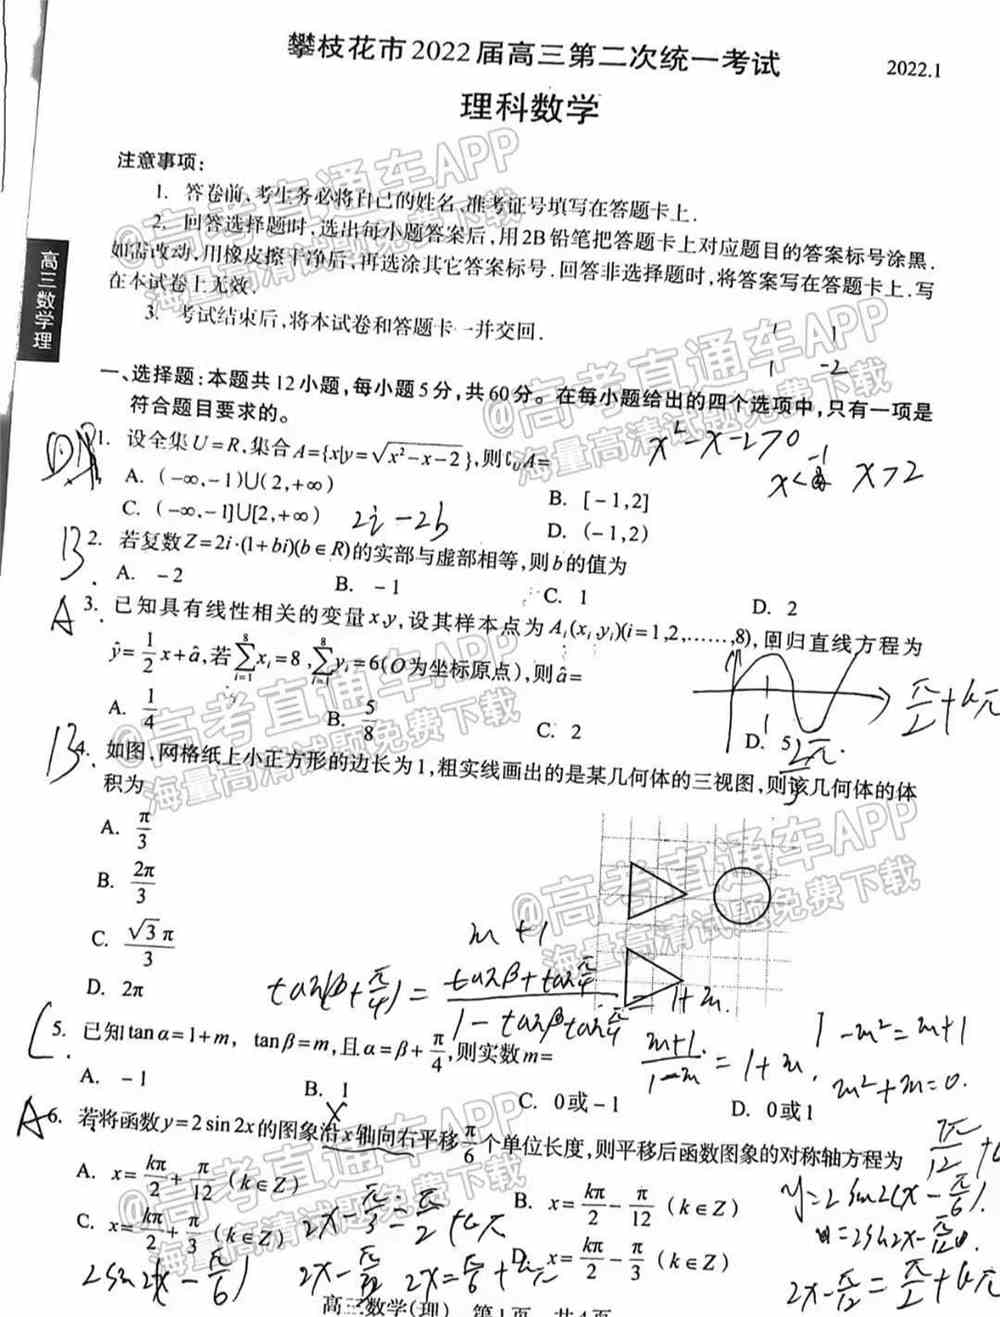 攀枝花市2022届高三第二次统一考试
2022.1
理科数学
注意事项:
1. 答卷前,考生务必将自己的姓名、准考证号填写在答题卡上.
2. 回答选择题时,选出每小题答案后,用2B铅笔把答题卡上对应题目的答案标号涂黑.
如需改动,用橡皮擦干净后,再选涂其它答案标号.回答非选择题时,将答案写在答题卡上.写
在本试卷上无效.
3. 考试结束后,将本试卷和答题卡一并交回.
高三数学理
1 1
1 -2
一、选择题:本题共12小题,每小题5分,共60分。在每小题给出的四个选项中,只有一项是
符合题目要求的。
x²-x-2>0
1. 设全集U=R,集合A={x|y=√(x²-x-2)},则∁UA=
x<-1 x>2
A. (-∞,-1)∪(2,+∞)
B. [-1,2]
C. (-∞,-1]∪[2,+∞)
D. (-1,2)
2i-2b
B
2. 若复数Z=2i·(1+bi)(b∈R)的实部与虚部相等,则b的值为
A. -2
B. -1
C. 1
D. 2
A
3. 已知具有线性相关的变量x,y,设其样本点为Ai(xi,yi)(i=1,2,……,8),回归直线方程为
ŷ=1/2x+â,若∑(i=1→8)xi=8,∑(i=1→8)yi=6(O为坐标原点),则â=
A. 1/4
B. 5/8
C. 2
D. 5
π/2+kπ
B
4. 如图,网格纸上小正方形的边长为1,粗实线画出的是某几何体的三视图,则该几何体的体
积为
A. π/3
B. 2π/3
C. √3π/3
D. 2π
m+1
tan(β+π/4)=(tanβ+tanπ/4)/(1-tanβtanπ/4)=1+m.
C
5. 已知tanα=1+m, tanβ=m,且α=β+π/4,则实数m=
(m+1)/(1-m)=1+m.
1-m²=m+1
m²+m=0.
A. -1
B. 1
C. 0或-1
D. 0或1
A
6. 若将函数y=2sin2x的图象沿x轴向右平移π/6个单位长度,则平移后函数图象的对称轴方程为
A. x=kπ/2+π/12 (k∈Z)
B. x=kπ/2-π/12 (k∈Z)
C. x=kπ/2+π/3 (k∈Z)
D. x=kπ/2-π/3 (k∈Z)
7π/12
y=2sin2(x-π/6).
2x-π/3=π/2+kπ
2sin2(x-π/6)
2x-π/12=π/2+kπ
高三数学(理) 第1页 共4页
@高考直通车APP
海量高清试题免费下载
@高考直通车APP
海量高清试题免费下载
@高考直通车APP
海量高清试题免费下载
@高考直通车APP
海量高清试题免费下载
@高考直通车APP
海量高清试题免费下载